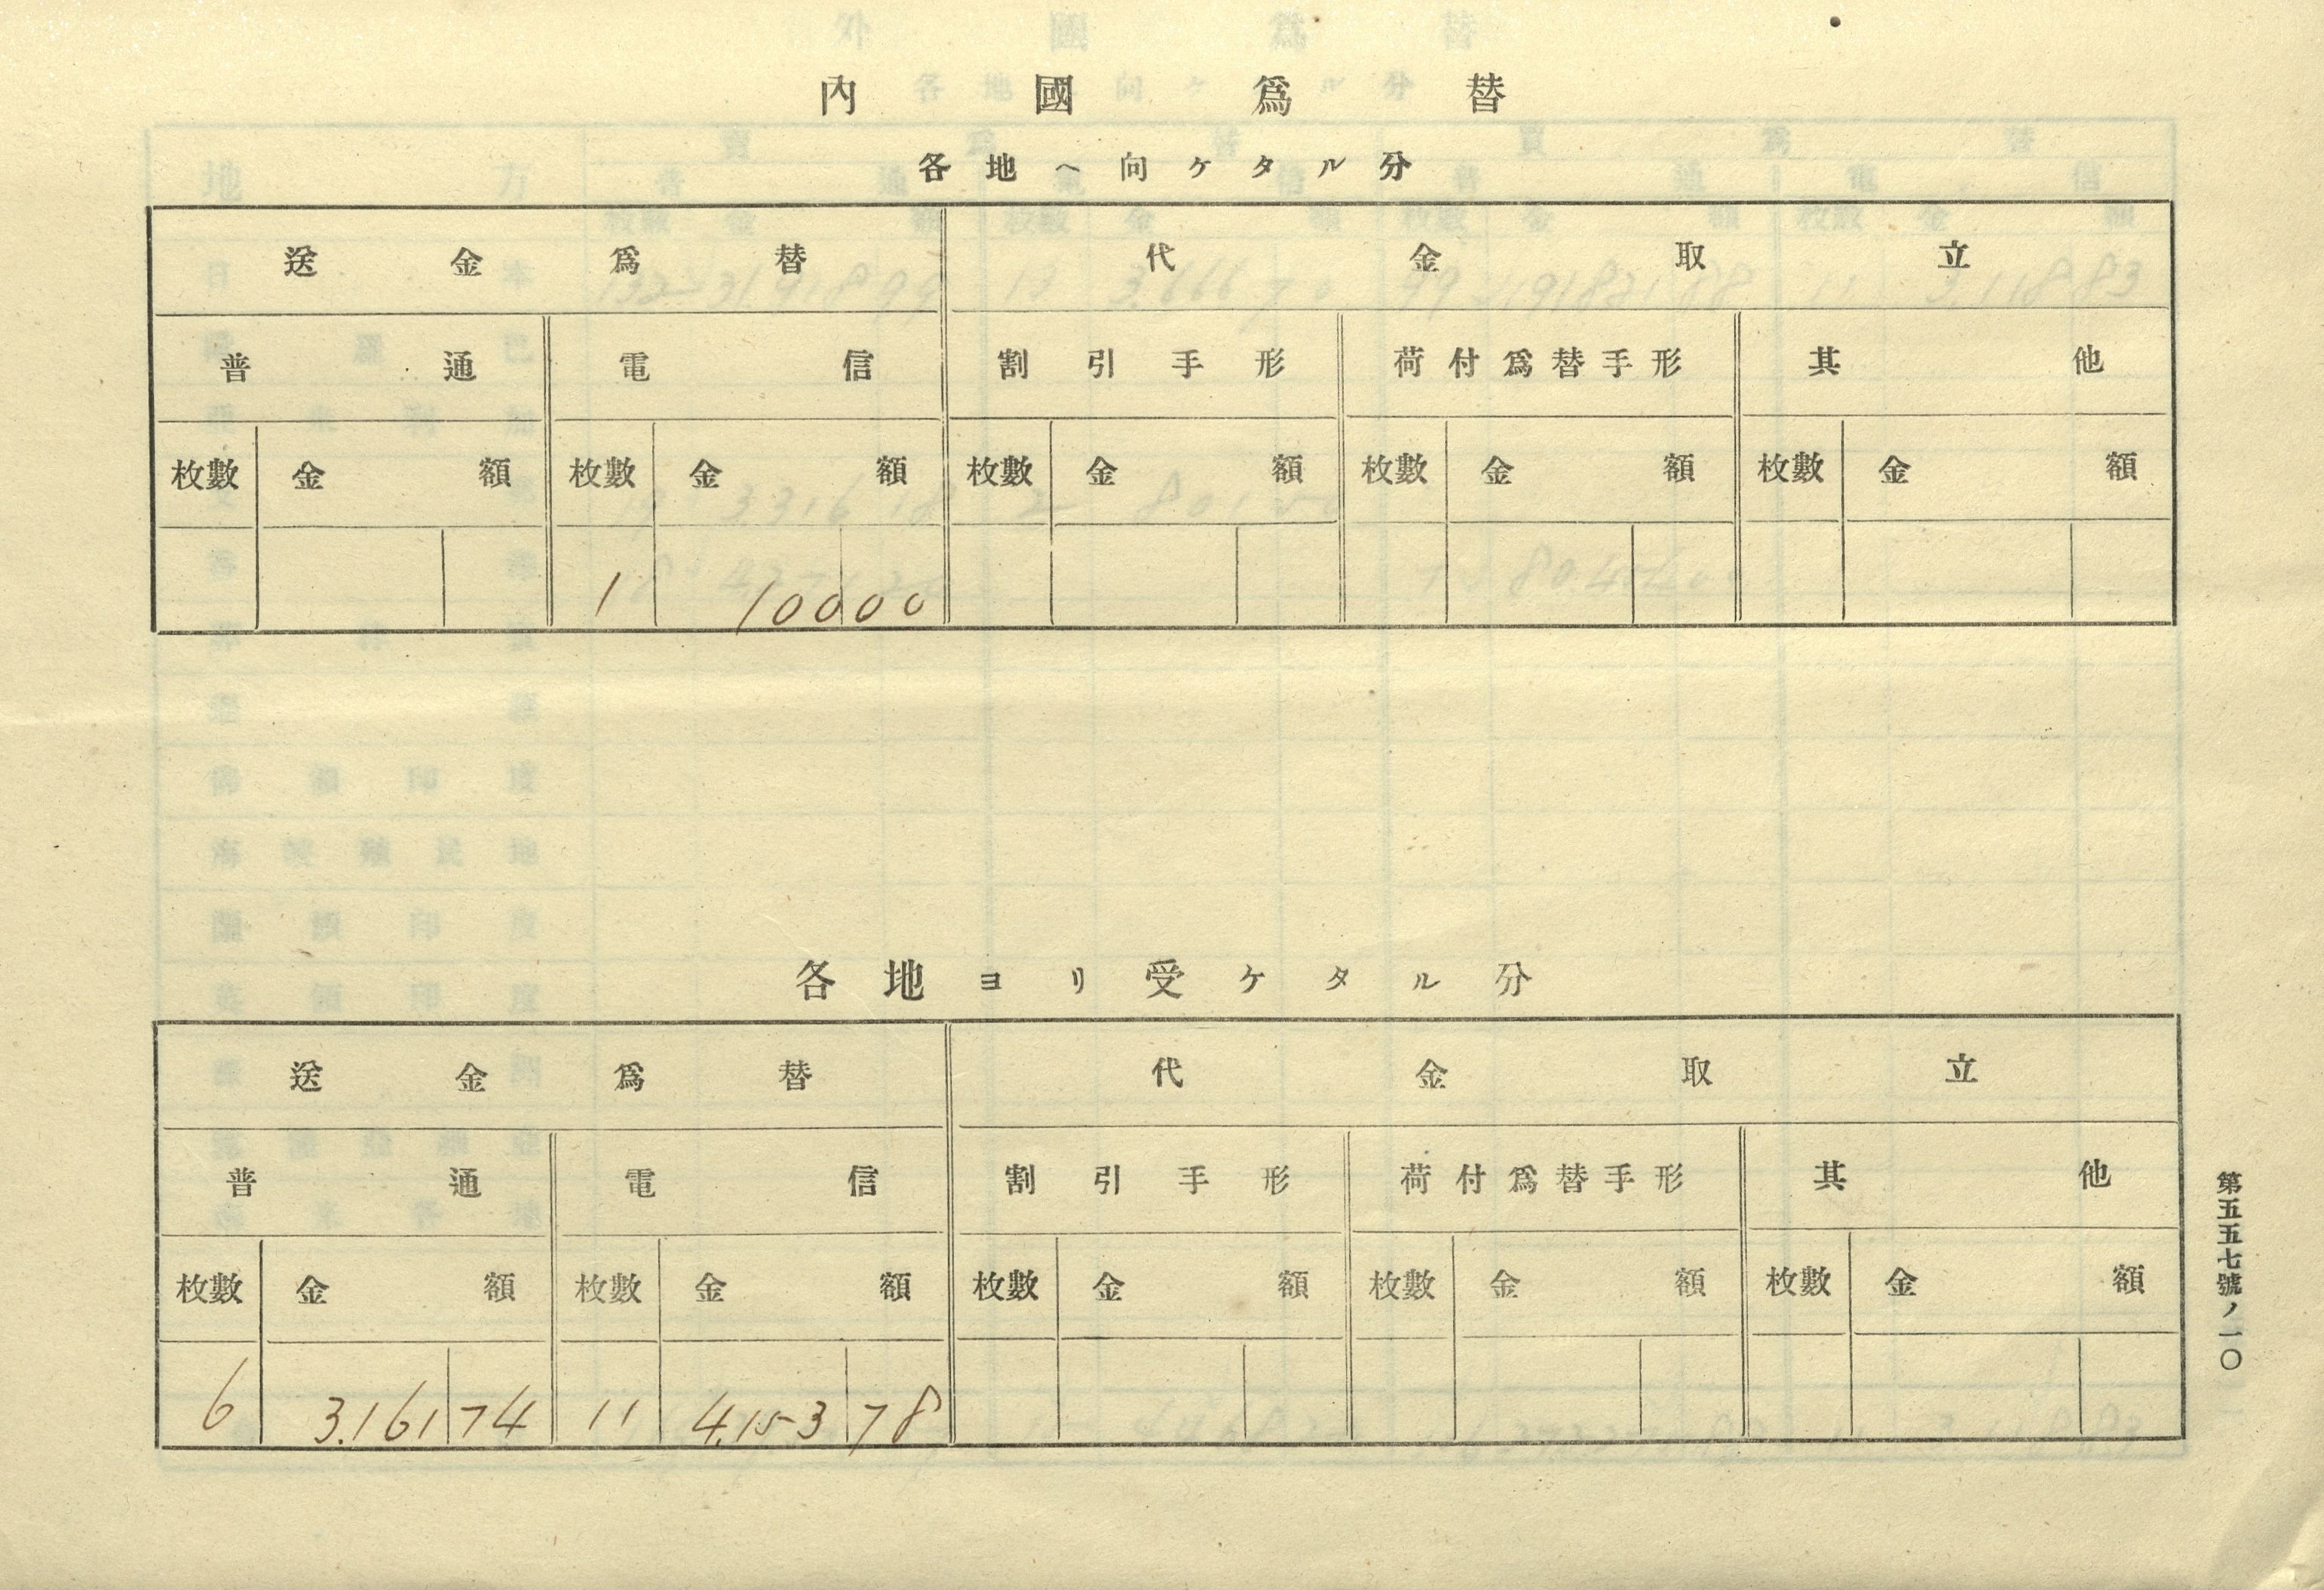 內國爲替
各地ヘ向ケタル分
送金爲替 代金取立
普通 電信 割引手形 荷付爲替手形 其他
枚數 金額 枚數 金額 枚數 金額 枚數 金額 枚數 金額
1 100 00
各地ヨリ受ケタル分
送金爲替 代金取立
普通 電信 割引手形 荷付爲替手形 其他
枚數 金額 枚數 金額 枚數 金額 枚數 金額 枚數 金額
6 3.161 74 11 4.153 78
第五五七號ノ一〇